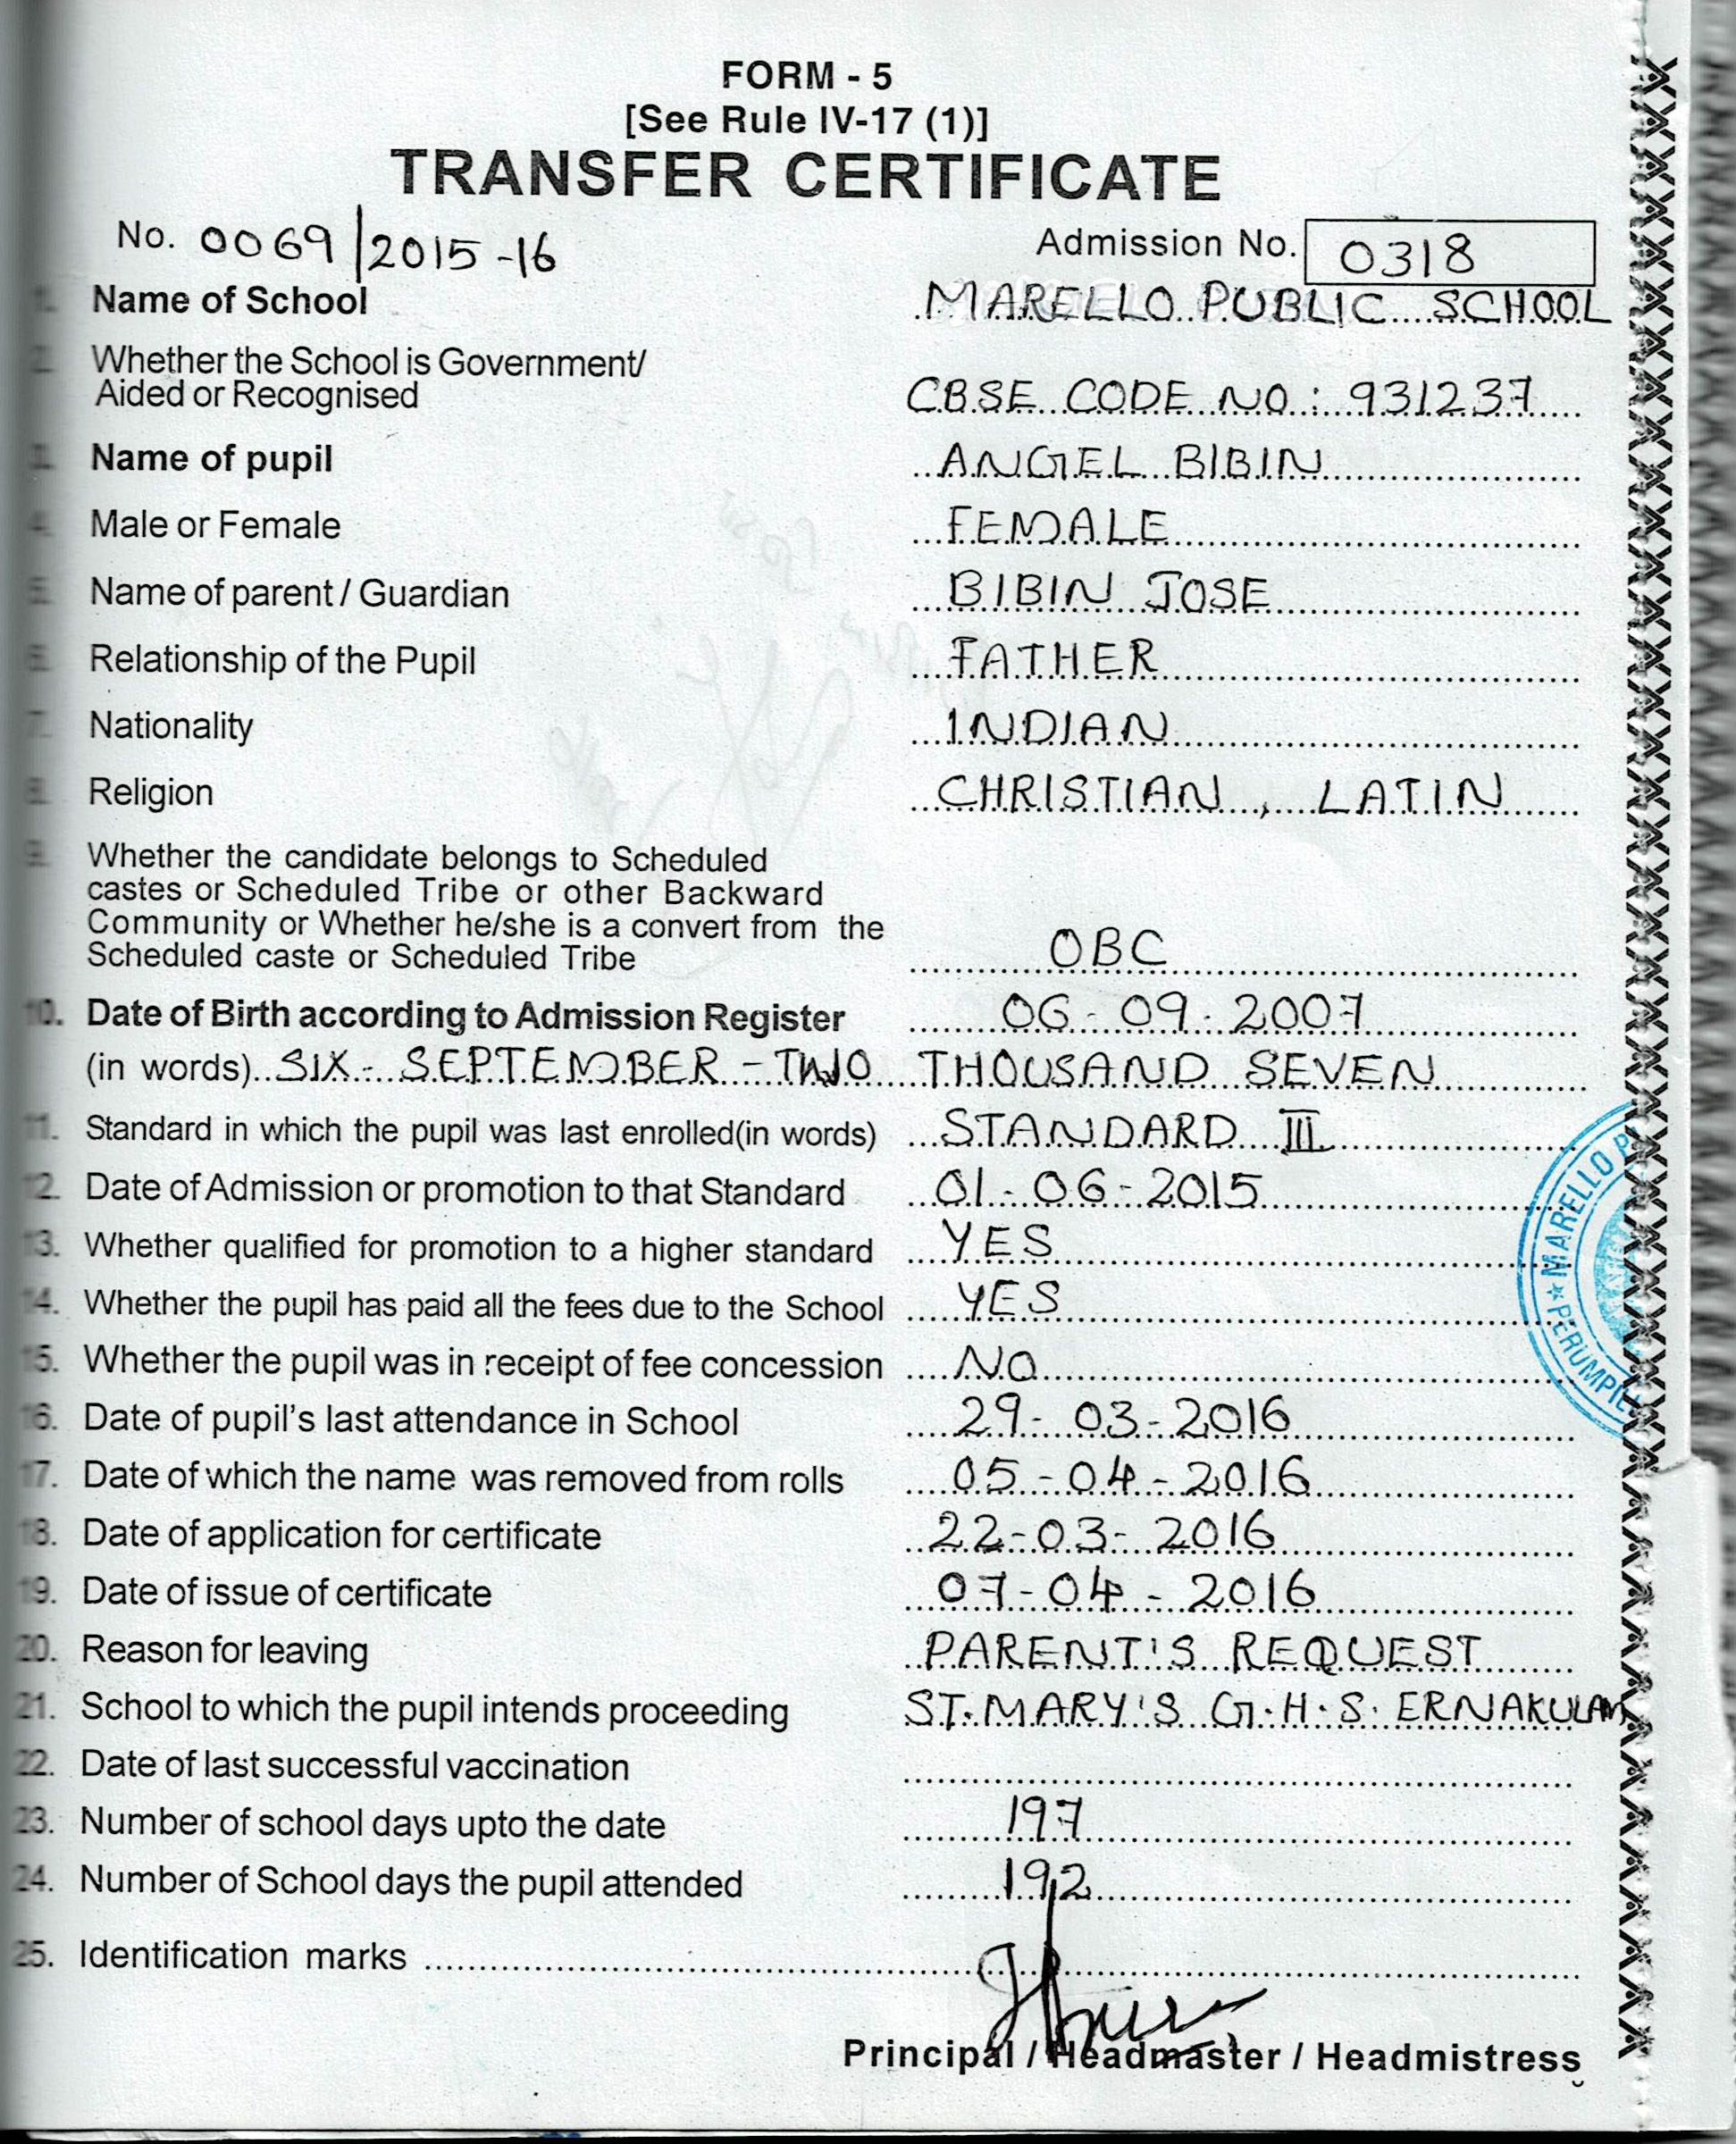 FORM - 5
[See Rule IV-17 (1)]
TRANSFER CERTIFICATE
No. 0069/2015-16 Admission No. 0318
1. Name of School MARELLO PUBLIC SCHOOL
2. Whether the School is Government/
Aided or Recognised CBSE CODE NO: 931237
3. Name of pupil ANGEL BIBIN
4. Male or Female FEMALE
5. Name of parent / Guardian BIBIN JOSE
6. Relationship of the Pupil FATHER
7. Nationality INDIAN
8. Religion CHRISTIAN, LATIN
9. Whether the candidate belongs to Scheduled
castes or Scheduled Tribe or other Backward
Community or Whether he/she is a convert from the
Scheduled caste or Scheduled Tribe OBC
10. Date of Birth according to Admission Register 06-09-2007
(in words) SIX - SEPTEMBER - TWO THOUSAND SEVEN
11. Standard in which the pupil was last enrolled(in words) STANDARD III
12. Date of Admission or promotion to that Standard 01-06-2015
13. Whether qualified for promotion to a higher standard YES
14. Whether the pupil has paid all the fees due to the School YES
15. Whether the pupil was in receipt of fee concession NO
16. Date of pupil's last attendance in School 29-03-2016
17. Date of which the name was removed from rolls 05-04-2016
18. Date of application for certificate 22-03-2016
19. Date of issue of certificate 07-04-2016
20. Reason for leaving PARENT'S REQUEST
21. School to which the pupil intends proceeding ST.MARY'S G.H.S. ERNAKULAM
22. Date of last successful vaccination
23. Number of school days upto the date 197
24. Number of School days the pupil attended 192
25. Identification marks
Principal / Headmaster / Headmistress
MARELLO